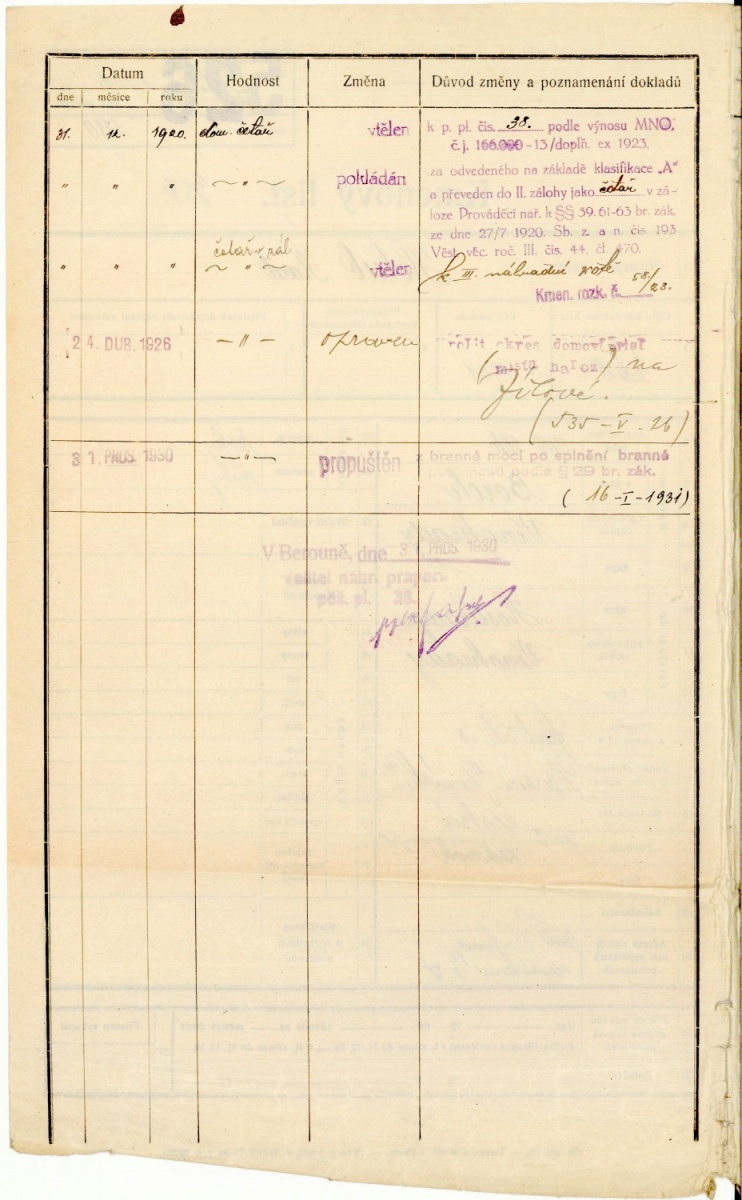 Datum Hodnost Změna Důvod změny a poznamenání dokladů
dne měsíce roku
31. 12. 1920. dom. četař vtělen k p. pl. čís. 38. podle výnosu MNO.
č. j. 166.000-13/doplň. ex 1923.
" " " " pokládán za odvedeného na základě klasifikace „A"
a převeden do II. zálohy jako četař v zá-
loze Prováděcí nař. k §§ 39. 61-63 br. zák.
ze dne 27/7 1920. Sb. z. a n. čís. 193
Věst. věc. roč. III. čís. 44. čl. 470.
četař v zál.
" " " " vtělen k III. náhradní rotě
Kmen. rozk. č. 58/28.
24. DUB. 1926 -"- opraven okres domov
(místa ) na
Jílové.
(535-V-26)
31. PROS. 1930 -"- propuštěn z branné moci po splnění branné
povinnosti podle § 29 br. zák.
(16-I-1931)
V Berouně, dne 31. PROS. 1930
velitel náhr. praporu
pěš. pl. 38.